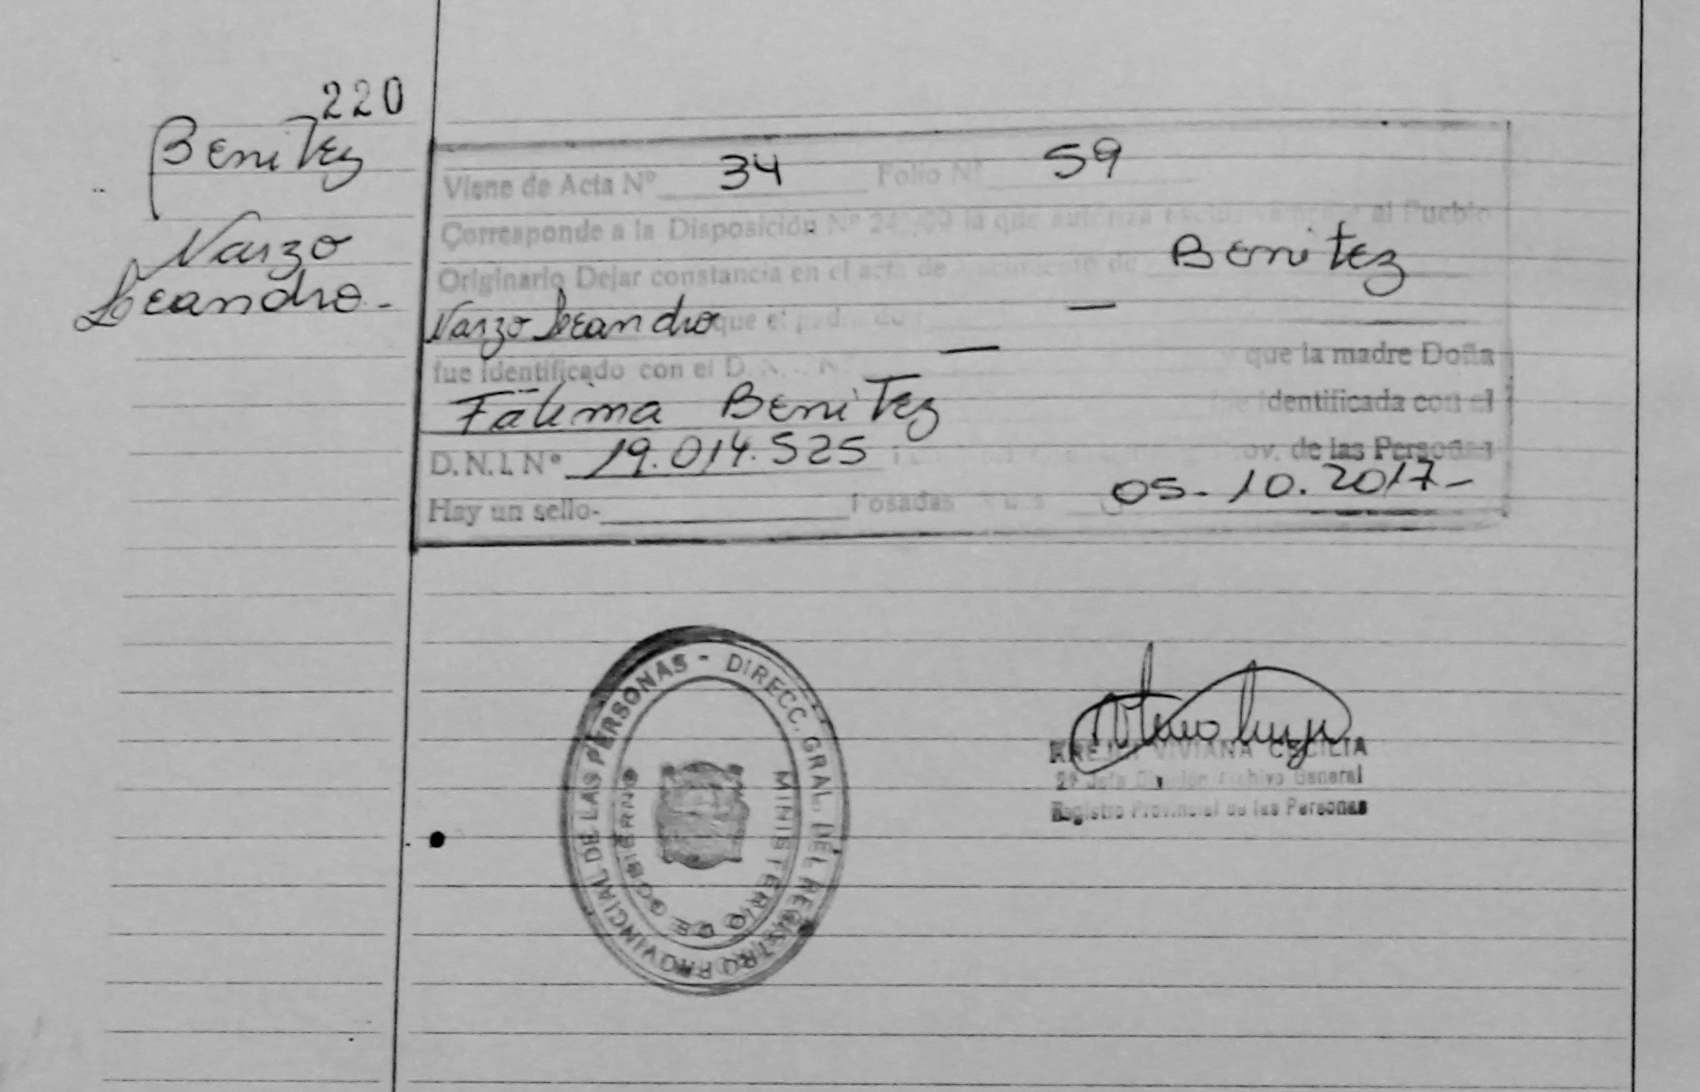 220
Benitez
Narzo
Leandro.-
Viene de Acta Nº 34 Folio Nº 59
Corresponde a la Disposición Nº la que autoriza exclusivamente al Pueblo
Originario Dejar constancia en el acta de nacimiento de Benitez
Narzo Leandro que el padre do —
fue identificado con el D.N.I. N° — y que la madre Doña
Fátima Benitez identificada con el
D.N.I. Nº 19.014.525 de las Personas
Hay un sello- Posadas 05-10.2017-
DIRECC. GRAL. DEL REGISTRO PROVINCIAL DE LAS PERSONAS -
MINISTERIO DE GOBIERNO
VIVIANA CECILIA
2º Jefe División Archivo General
Registro Provincial de las Personas